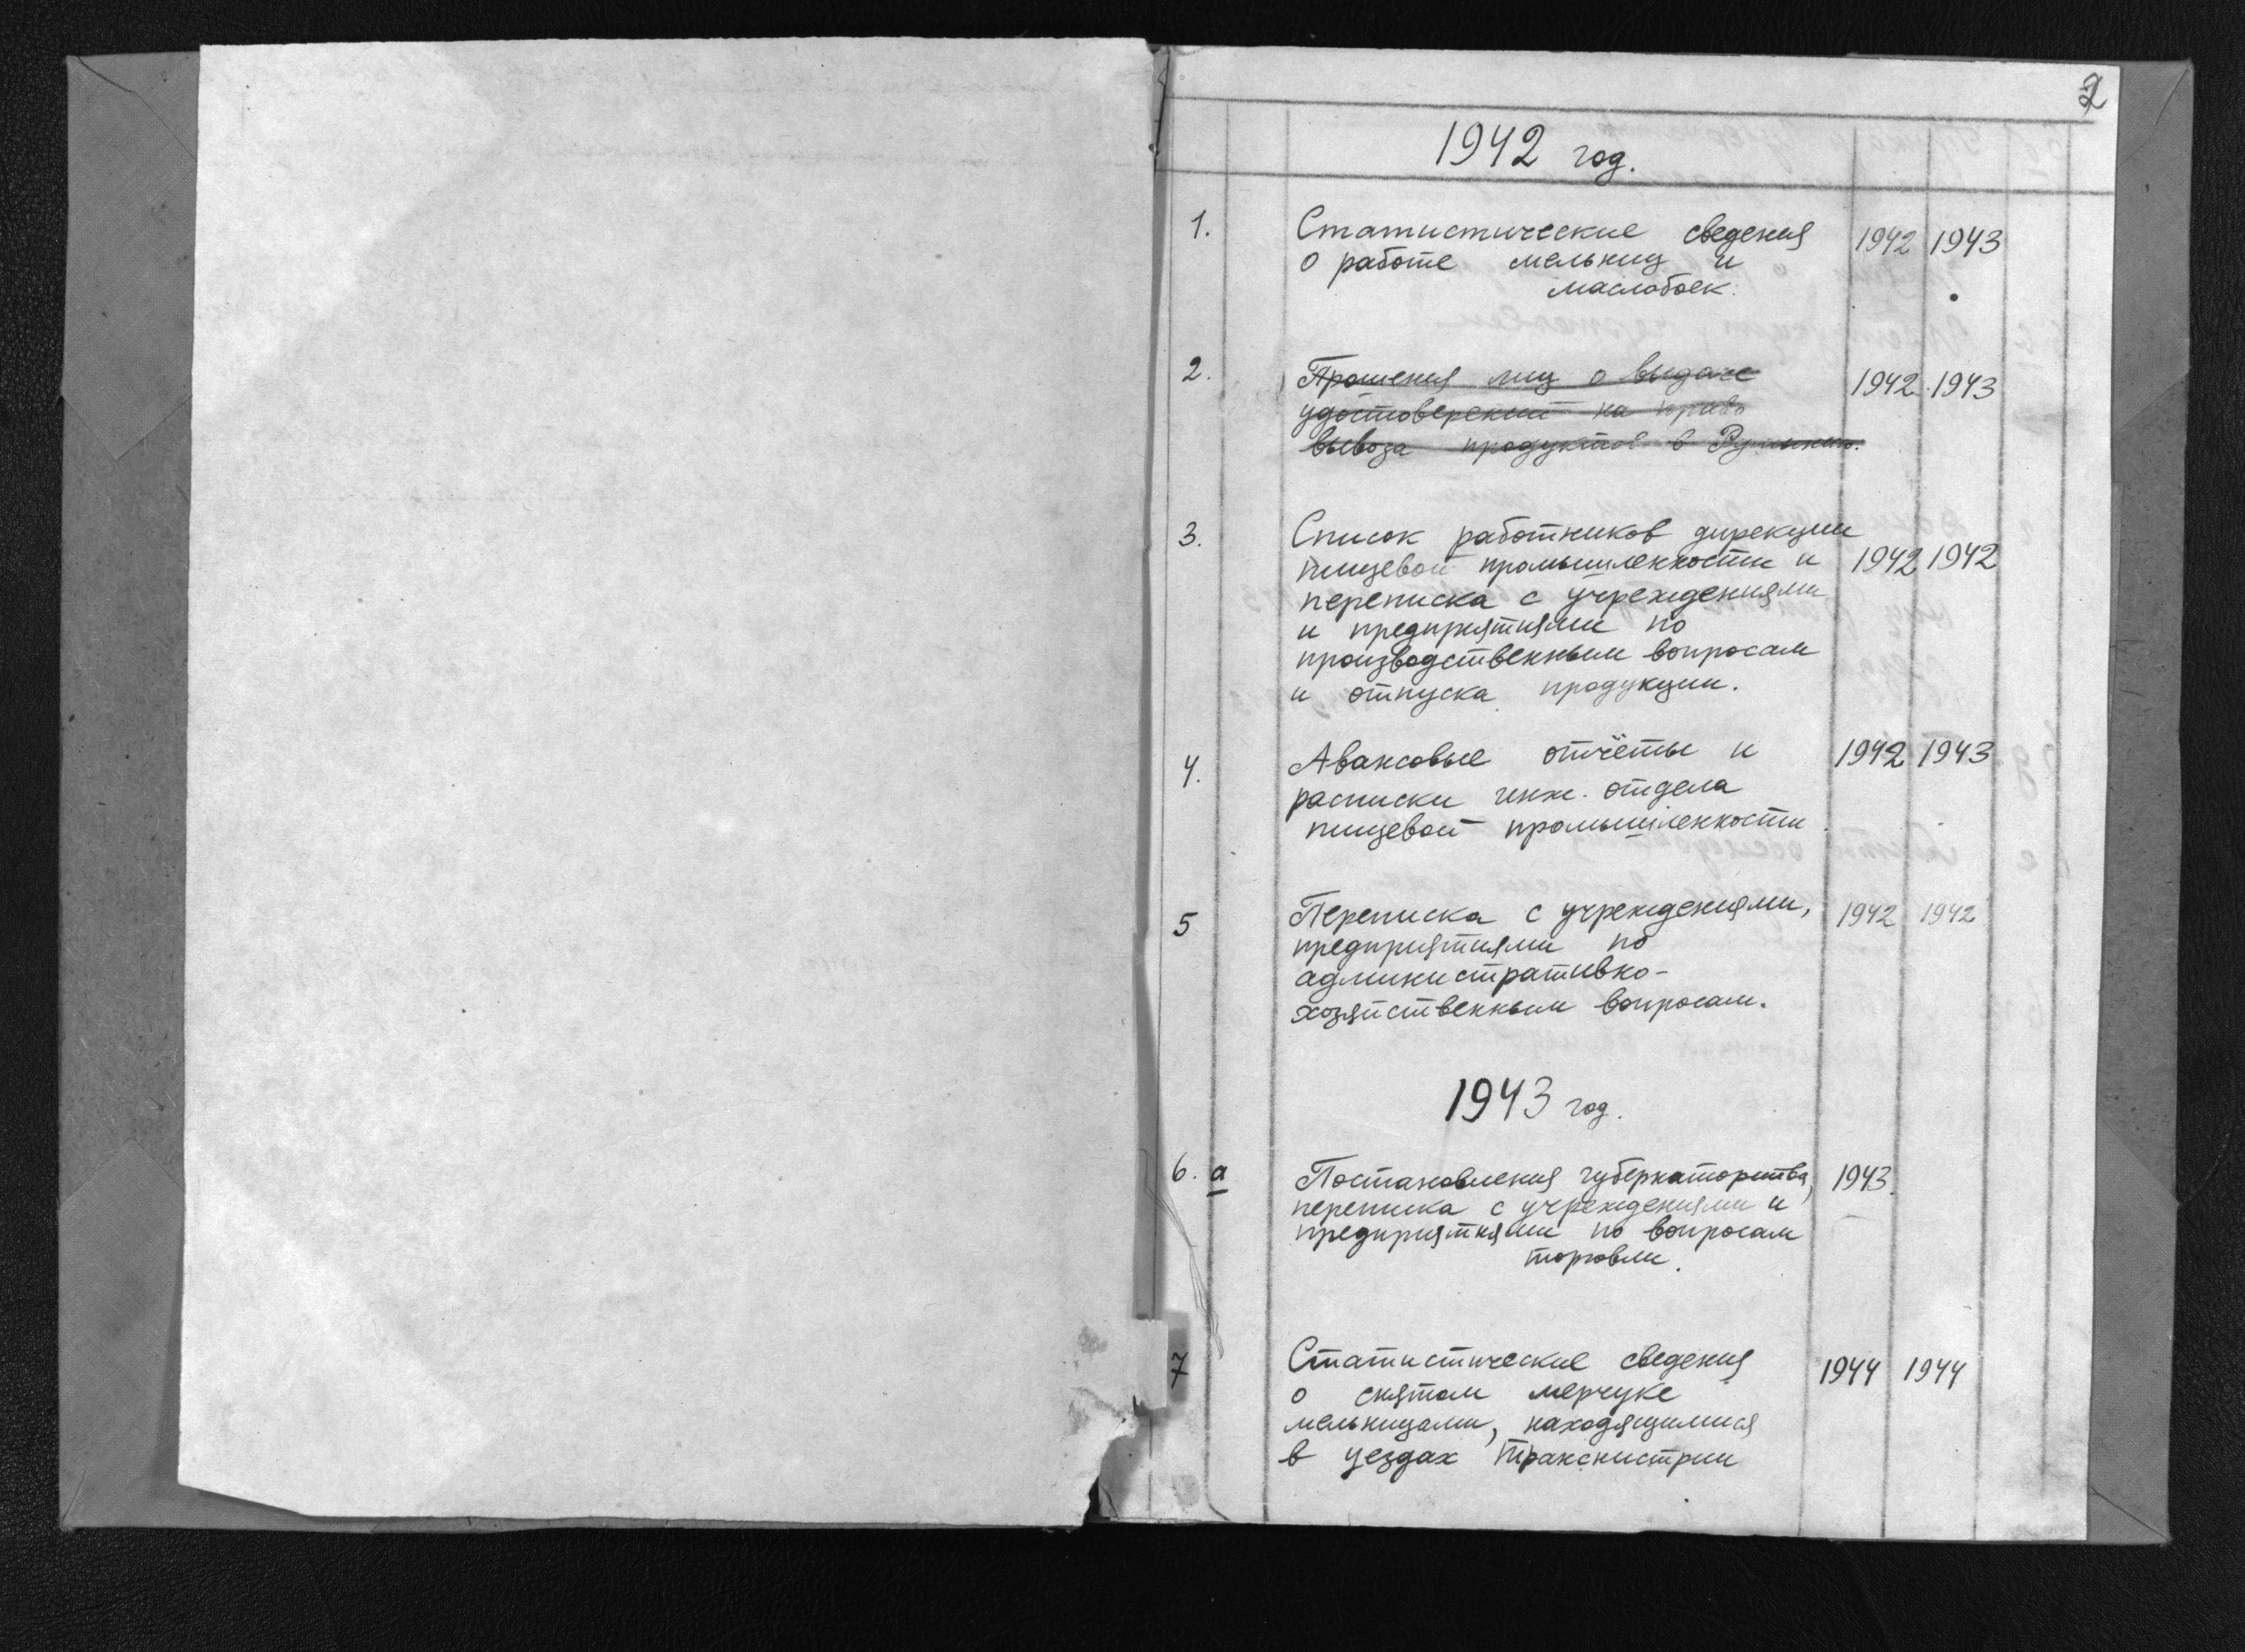 2
1942 год.
1. Статистические сведения 1942 1943
о работе мельниц и
маслобоек.
2. Прошения лиц о выдаче 1942 1943
удостоверений на право
вывоза продуктов в Румынию.
3. Список работников дирекции
пищевой промышленности и 1942 1942
переписка с учреждениями
и предприятиями по
производственным вопросам
и отпуска продукции.
4. Авансовые отчёты и 1942 1943
расписки инж. отдела
пищевой промышленности.
5 Переписка с учреждениями, 1942 1942
предприятиями по
административно-
хозяйственным вопросам.
1943 год.
6. а Постановления губернаторства, 1943.
переписка с учреждениями и
предприятиями по вопросам
торговли.
7 Статистические сведения 1944 1944
о снятом мерчуке
мельницами, находящимися
в уездах Транснистрии